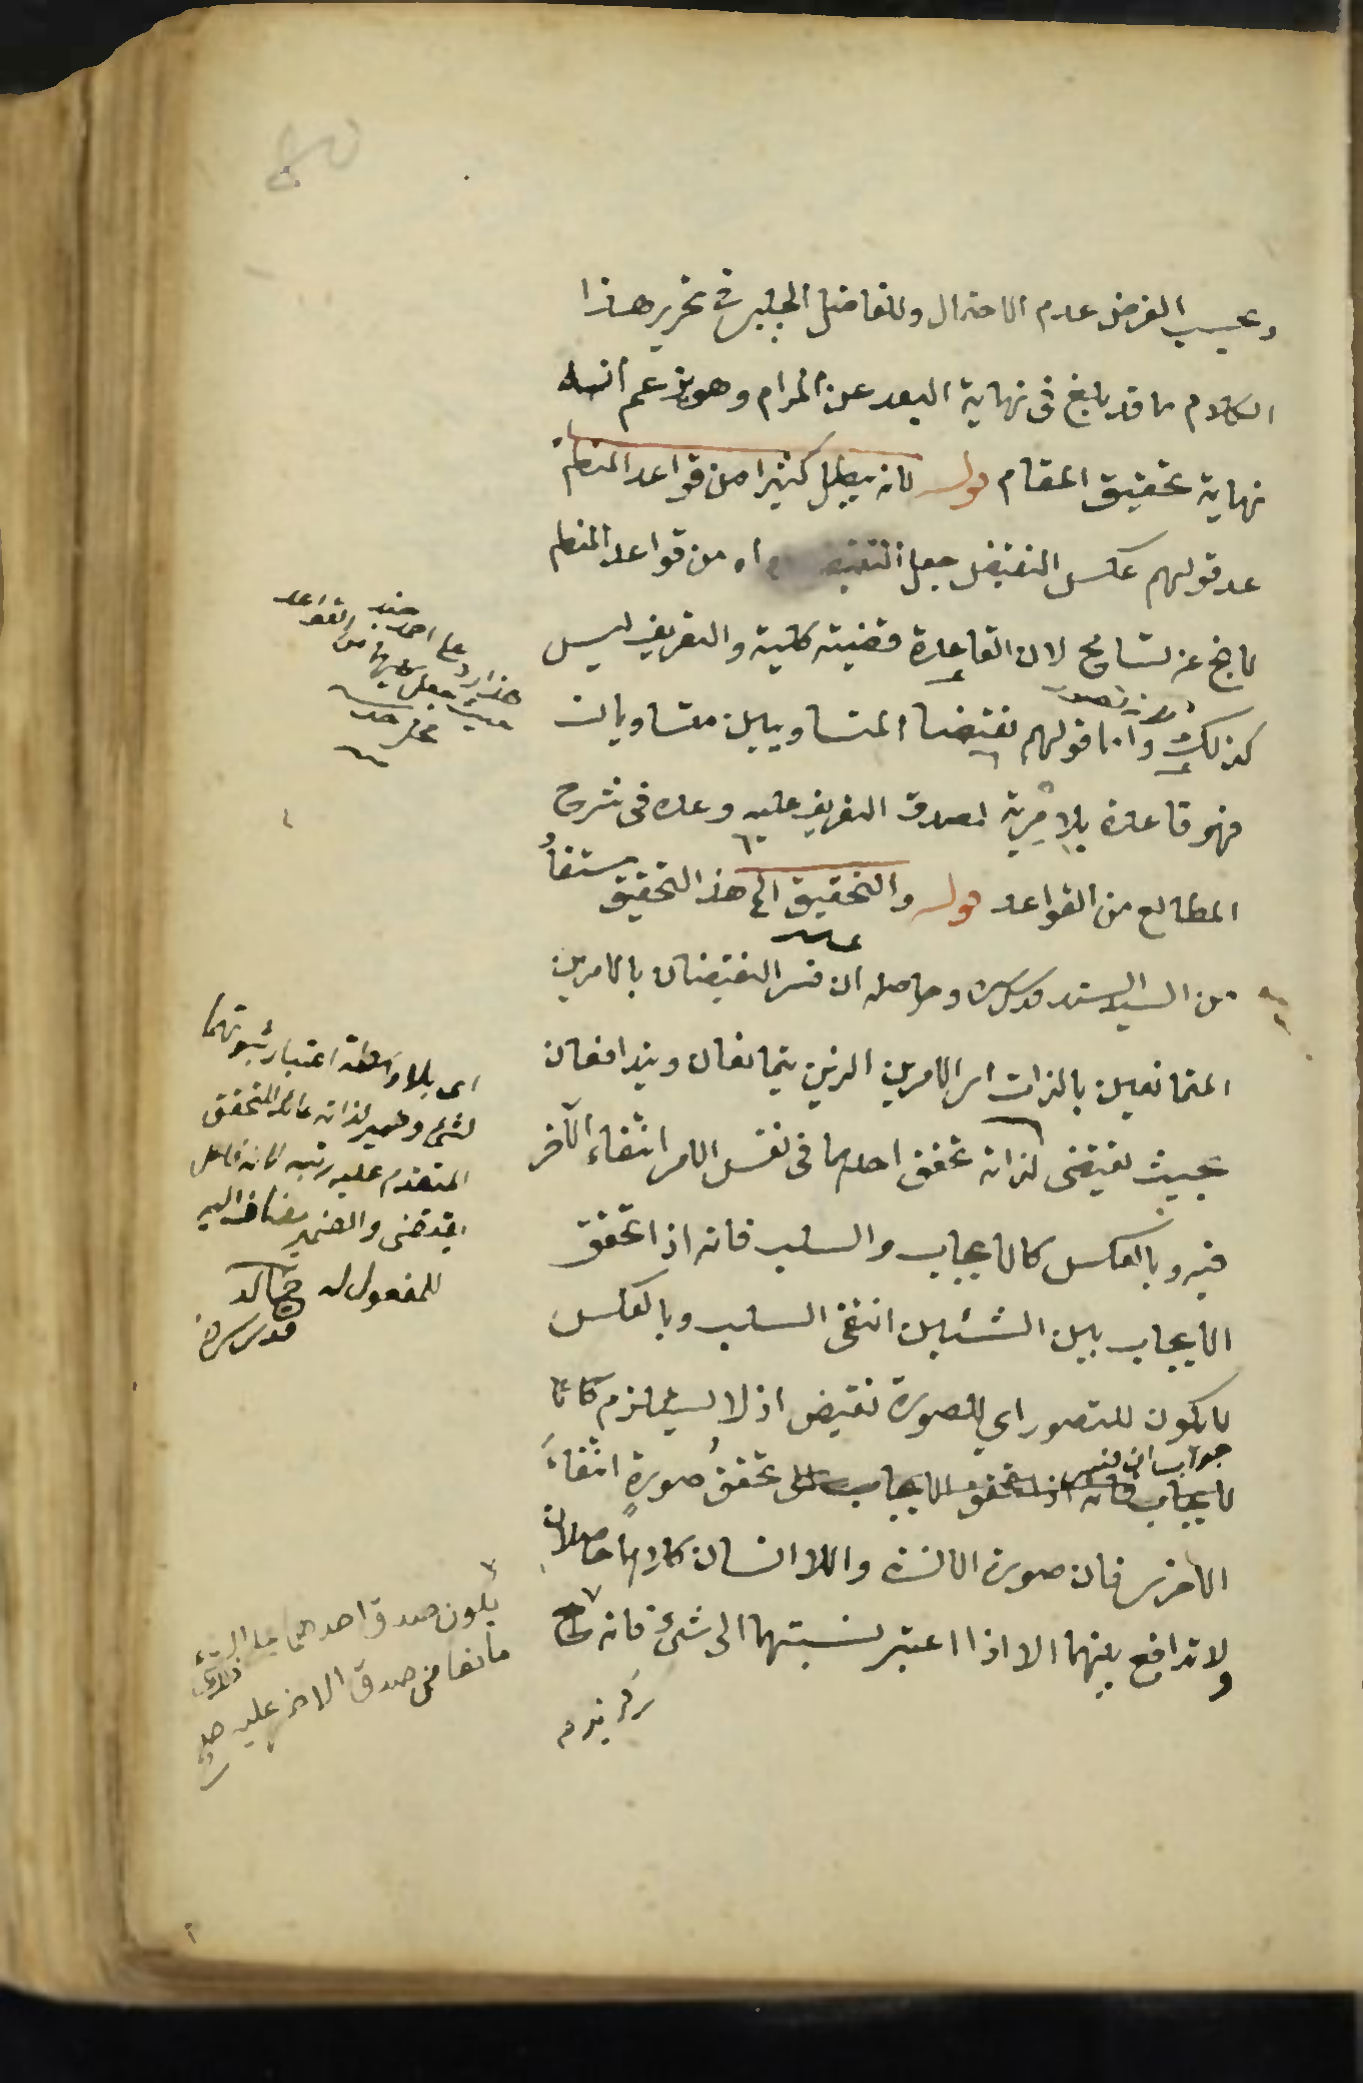 وبحسب الفرض عدم الاحتمال وللفاضل الجلبي في تحرير هذا
الكلام ما قد بلغ في نهاية البعد عن المرام وهو يزعم انه
نهاية تحقيق المقام قوله لانه يبطل كثيرا من قواعد المنطق
عد قولهم عكس النقيض جعل اه من قواعد المنطق
لا يخ عن تسامح لان القاعدة قضية كلية والتعريف ليس
كذلك واما قولهم نقيضا المتساويين متساويان
فهو قاعدة بلا مرية لصدق التعريف عليه وعده في شرح
المطالع من القواعد قوله والتحقيق الخ هذا التحقيق مستفاد
من السيد السند قدس سره وحاصله ان فسر النقيضان بالامرين
المتمانعين بالذات اى الامرين الذين يتمانعان ويتدافعان
بحيث يقتضى لذاته تحقق احدهما فى نفس الامر انتفاء الآخر
فيه وبالعكس كالايجاب والسلب فانه اذا تحقق
الايجاب بين الشيئين انتفى السلب وبالعكس
لا يكون للتصور اي للصورة نقيض اذ لا يستلزم
جواب ان فسر
تحقق صورة انتفاء
الاخرى فان صورة الانسان واللا انسان كلاهما حاصلان
ولا تدافع بينهما الا اذا اعتبر نسبتهما الى شيء فانه ح
هذا رد على احمد
حيث جعل من القواعد
اى بلا واسطة اعتبار ثبوتهما
لشئ وضمير لذاته عائد للتحقق
المتقدم عليه رتبه لانه فاعل
يقتضى والضمير مضاف اليه
للمفعول له خالد
قدس سره
يكون صدق احدهما على الشيء
مانعا من صدق الاخر عليه